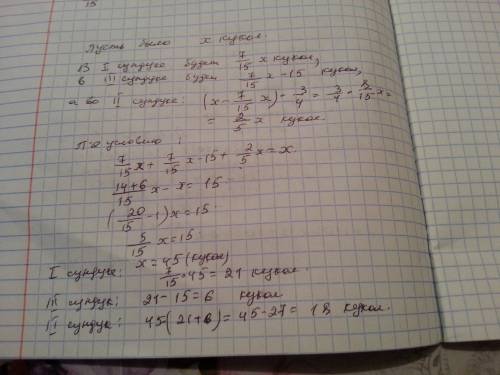 15
Пусть было x кукол.
В I сундуке будет 7/15 x кукол,
в III сундуке будет 7/15 x - 15 кукол,
а во II сундуке: (x - 7/15 x) · 3/4 = 3/4 · 8/15 x =
= 2/5 x кукол.
По условию:
7/15 x + 7/15 x - 15 + 2/5 x = x.
14+6/15 x - x = 15.
(20/15 - 1) x = 15.
5/15 x = 15.
x = 45 (кукол)
I сундук: 7/15 · 45 = 21 кукол.
III сундук: 21 - 15 = 6 кукол
II сундук: 45 (21+6) = 45 - 27 = 18 кукол.